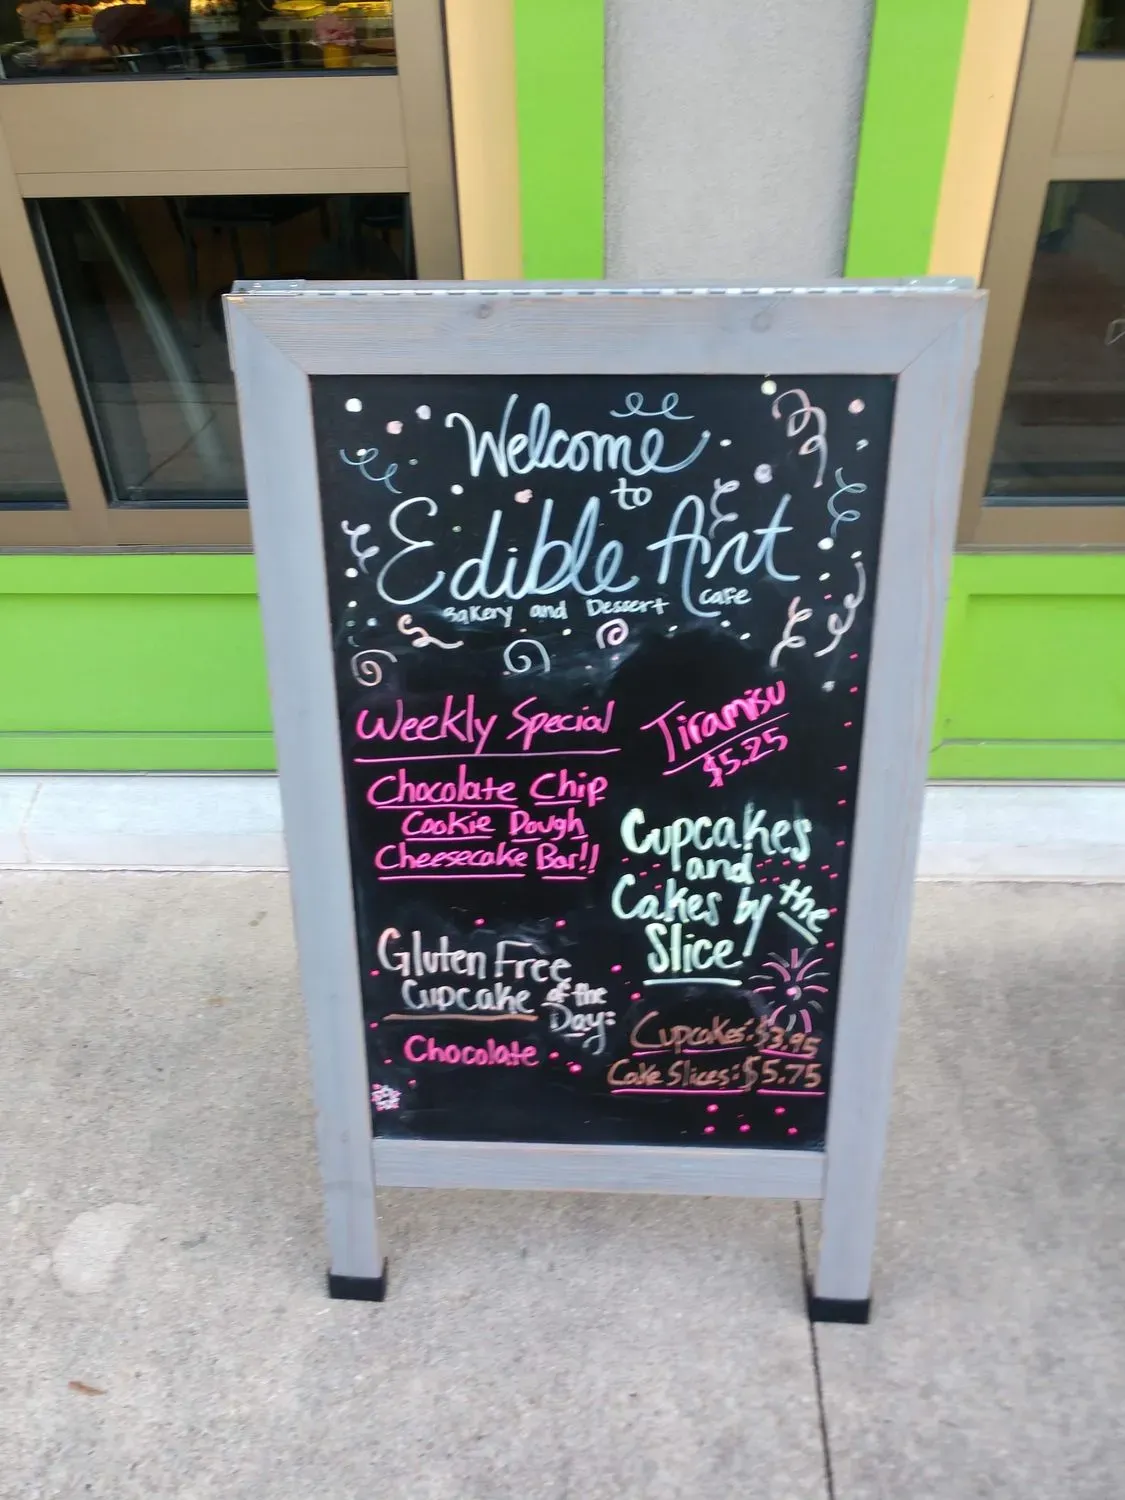 Welcome
to
Edible Art
Bakery and Dessert cafe
Weekly Special
Chocolate Chip
Cookie Dough
Cheesecake Bar!!
Gluten Free
Cupcake of the
Day:
Chocolate
Tiramisu
$5.25
Cupcakes
and
Cakes by the
Slice
Cupcakes: $3.95
Cake Slices: $5.75